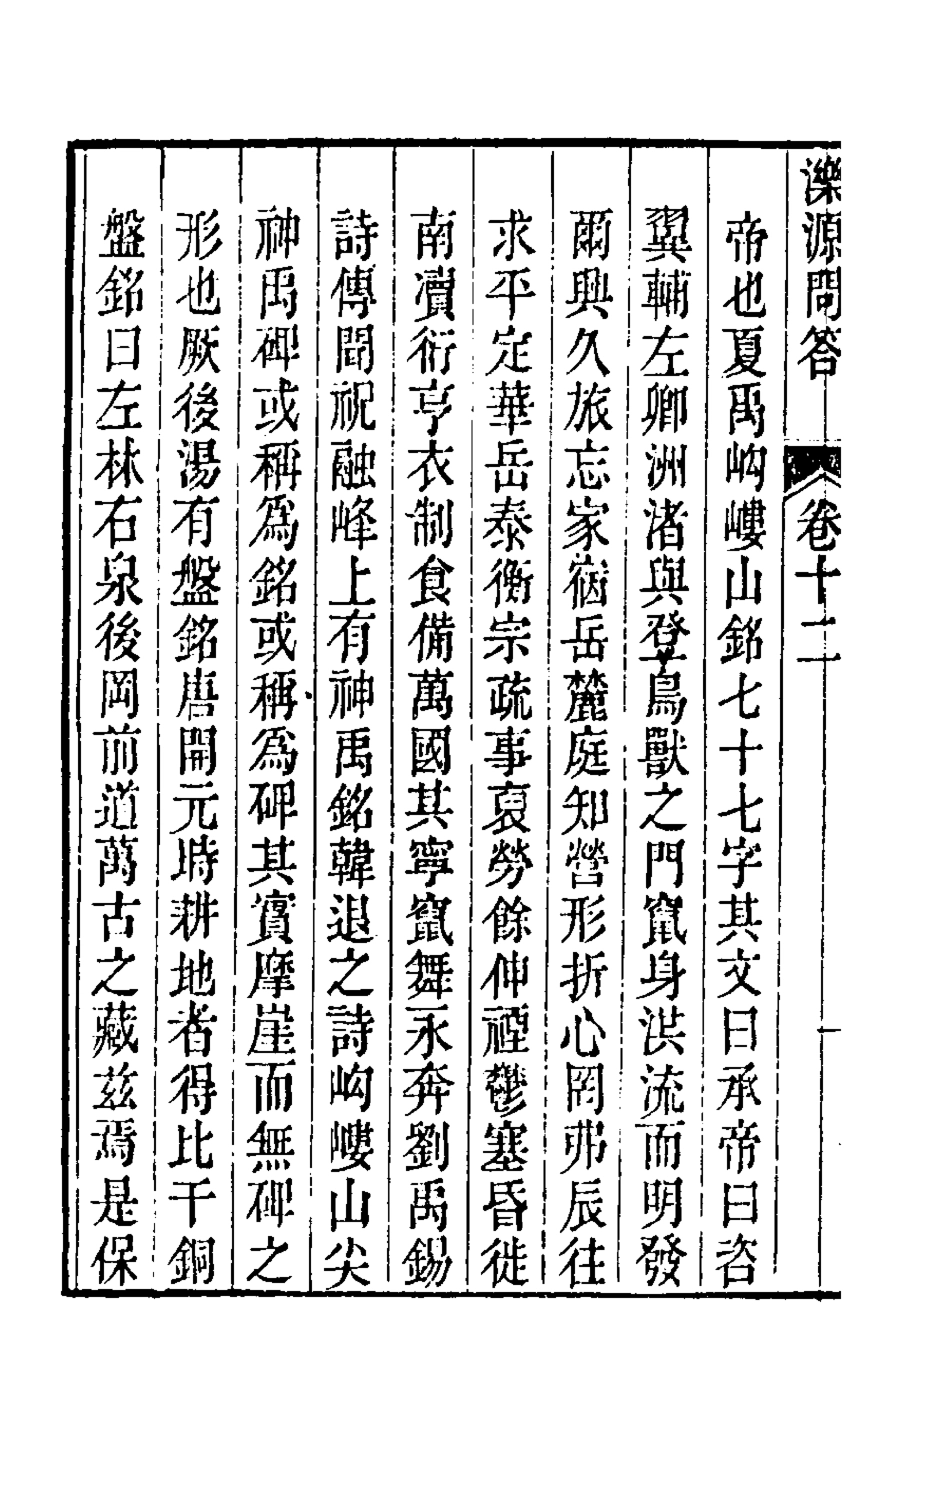 濼源問答 卷十二 一
帝也夏禹岣嶁山銘七十七字其文曰承帝曰咨
翼輔左卿洲渚與登鳥獸之門竄身洪流而明發
爾興久旅忘家宿岳麓庭知營形折心罔弗辰往
求平定華岳泰衡宗疏事裒勞餘伸禋鬱塞昏徙
南瀆衍亨衣制食備萬國其寧竄舞永奔劉禹錫
詩傳聞祝融峰上有神禹銘韓退之詩岣嶁山尖
神禹碑或稱爲銘或稱爲碑其實摩崖而無碑之
形也厥後湯有盤銘唐開元時耕地者得比干銅
盤銘曰左林右泉後岡前道萬古之藏茲焉是保